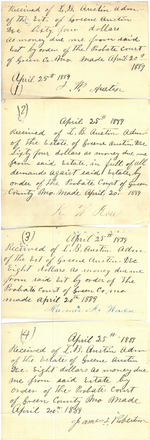 Received of L. B. Austin Adm.
of the Est. of Greene Austin
Dec Sixty four dollars
as money due me from said
Est. by order of the Probate Court
of Green Co. Mo. Made April 20th
1889
April 25th 1889
(1)
(2)
April 25th 1889
Received of L. B. Austin Adm.
of the Estate of Greene Austin
Dec Sixty four dollars as money due me
from said Estate, in full of all
demands against said Estate, by
order of the Probate Court of Green
County Mo. Made April 20th 1889
(3)
April 25th 1889
Received of L. B. Austin Adm.
of the Est of Greene Austin
Dec Eight dollars as money due me
from said Est by order of the
Probate Court of Green Co. Mo
made April 20th 1889
(4)
April 25th 1889
Received of L. B. Austin Adm
of the Estate of Greene Austin
Dec. Eight dollars as money due
me from said Estate by
order of the Probate Court
of Green County Mo. Made
April 20th 1889
James J. Robertson